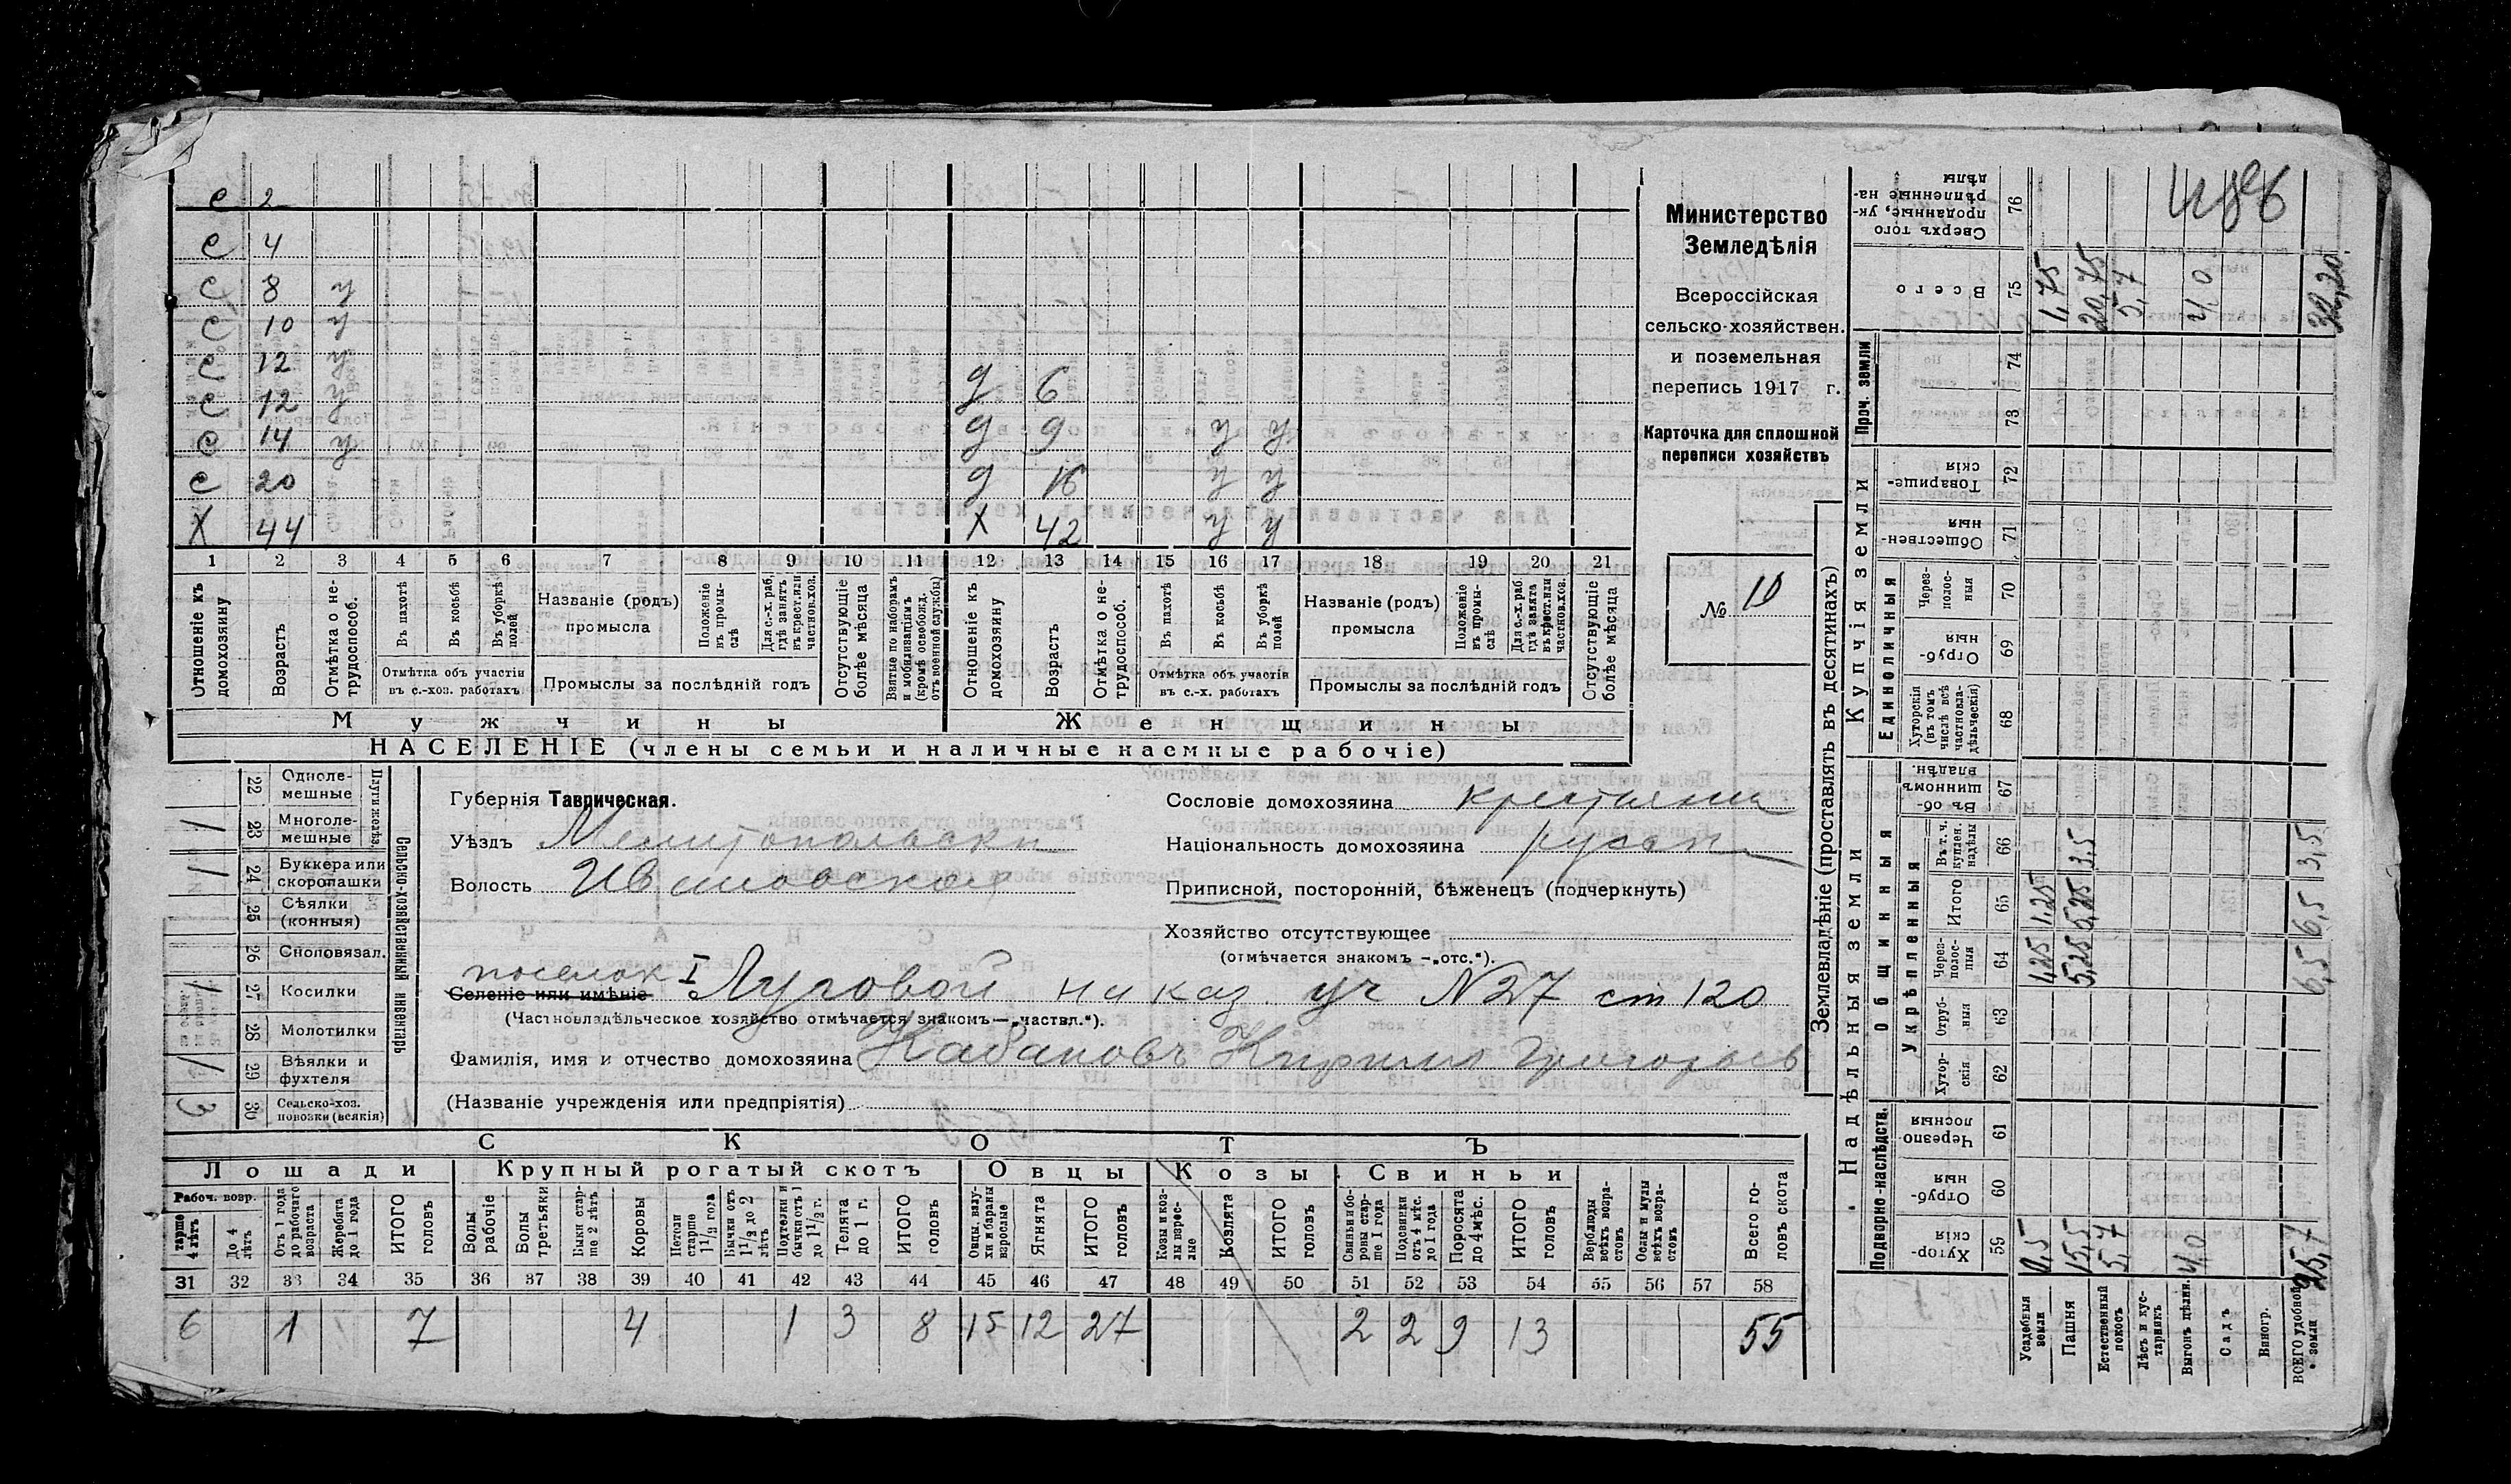 С 2
С 4
С 8 у
С 10 у
С 12 у
С 12 у д 6
С 14 у д 9 у у
С 20 д 16 у у
Х 44 Х 42 у у
1 2 3 4 5 6 7 8 9 10 11 12 13 14 15 16 17 18 19 20 21
Отношеніе къ домохозяину
Возрастъ
Отмѣтка о нетрудоспособ.
Въ пахотѣ
Въ косьбѣ
Въ уборкѣ полей
Отмѣтка объ участіи въ с.-хоз. работахъ
Названіе (родъ) промысла
Положеніе въ промыслѣ
Для с.-х. раб. гдѣ занятъ въ крест. или частнов. хоз.
Промыслы за послѣдній годъ
Отсутствующіе болѣе мѣсяца
Взятые по наборамъ и мобилизаціямъ (кромѣ освобожд. отъ военной службы)
Отношеніе къ домохозяину
Возрастъ
Отмѣтка о нетрудоспособ.
Въ пахотѣ
Въ косьбѣ
Въ уборкѣ полей
Отмѣтка объ участіи въ с.-х. работахъ
Названіе (родъ) промысла
Положеніе въ промыслѣ
Для с.-х. раб. гдѣ занята въ крест. или частнов. хоз.
Промыслы за послѣдній годъ
Отсутствующіе болѣе мѣсяца
Мужчины Женщины
НАСЕЛЕНІЕ (члены семьи и наличные наемные рабочіе)
Министерство
Земледѣлія
Всероссійская
сельско-хозяйствен.
и поземельная
перепись 1917 г.
Карточка для сплошной
переписи хозяйствъ
№ 10
Сельско-хозяйственный инвентарь
Плуги желѣз.
22 Однолемешные
23 Многолемешные 1
24 Буккера или скоропашки 1
25 Сѣялки (конныя)
26 Сноповязал.
27 Косилки 1
28 Молотилки
29 Вѣялки и фухтеля 1
30 Сельско-хоз. повозки (всякія) 3
Губернія Таврическая.
Уѣздъ Мелитопольски
Волость Ивановская
Сословіе домохозяина крестьянин
Національность домохозяина русск
Приписной, посторонній, бѣженец (подчеркнуть)
Хозяйство отсутствующее
(отмѣчается знакомъ —„отс.“).
поселок
Селеніе или имѣніе I Луговой на каз. уч N27 ст 120
(Частновладѣльческое хозяйство отмѣчается знакомъ—„частвл.“).
Фамилія, имя и отчество домохозяина Кабановъ Кирилл Григорьев
(Названіе учрежденія или предпріятія)
СКОТЪ
Лошади Крупный рогатый скотъ Овцы Козы Свиньи
Рабоч. возр.
старше 4 лѣтъ
До 4 лѣтъ
Отъ 1 года до рабочаго возраста
Жеребята до 1 года
ИТОГО головъ
Волы рабочіе
Волы третьяки
Быки старше 2 лѣтъ
Коровы
Нетели старше 1 1/2 года
Бычки отъ 1 1/2 до 2 лѣтъ
Подтелки и бычки отъ 1 до 1 1/2 г.
Телята до 1 г.
ИТОГО головъ
Овцы, валухи и бараны взрослые
Ягнята
ИТОГО головъ
Козы и козлы взрослые
Козлята
ИТОГО головъ
Свиньи и боровы старше 1 года
Подсвинки отъ 4 мѣс. до 1 года
Поросята до 4 мѣс.
ИТОГО головъ
Верблюды всѣхъ возрастовъ
Ослы и мулы всѣхъ возрастовъ
Всего головъ скота
31 32 33 34 35 36 37 38 39 40 41 42 43 44 45 46 47 48 49 50 51 52 53 54 55 56 57 58
6 1 7 4 1 3 8 15 12 27 2 2 9 13 55
Землевладѣніе (проставлять въ десятинахъ)
Надѣльныя земли
Купчія земли
Проч. земли
Подворно-наслѣдств.
Общинныя
Укрѣпленныя
Единоличныя
Хуторскія 59
Отрубныя 60
Черезполосныя 61
Хуторскія 62
Отрубныя 63
Черезполосныя 64
Итого 65
Въ т. ч. куплен. надѣлы 66
Въ общинномъ владѣн. 67
Хуторскія (въ томъ числѣ всѣ частновладѣльческія) 68
Отрубныя 69
Черезполосныя 70
Общественныя 71
Товарищескія 72
73
74
Всего 75
Сверхъ того проданные, укрѣпленные надѣлы 76
Усадебныя земли 0,5 1,25 1,25 1,75
Пашня 15,5 5,25 5,25 3,5 20,75
Естественный покосъ 5,7 5,7
Лѣсъ и кустарникъ
Выгонъ цѣлин. 4,0 4,0
Садъ
Виногр.
ВСЕГО удобной земли 25,7 6,5 6,5 3,5 32,20